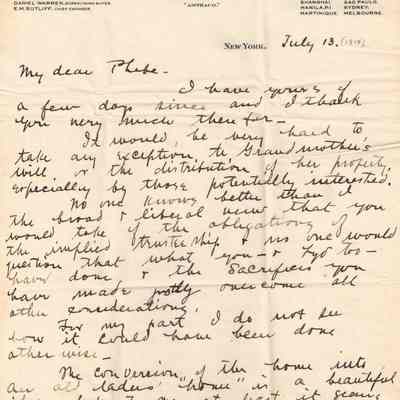 DANIEL WARREN,
E.M. SUTLIFF, CHIEF ENGINEER
"ANTRACO."
SHANGHAI SAO PAULO,
MANILA, P.I. SYDNEY,
MARTINIQUE. MELBOURNE.
NEW YORK, July 13.
My dear Phebe -
I have yours of
a few days since and I thank
you very much therefor -
It would, be very hard to
take any exception to Grandmother's
will & the distribution of her property,
especially by those potentially interested.
No one knows better than I
the broad & liberal view that you
would take of the obligations of
the implied trusteeship & no one would
question that what you - & too -
have done & the sacrifices you
have made overcome all
other considerations.
For my part I do not see
how it could have been done
otherwise -
The conversion, of the home into
an old ladies' "home" is a beautiful